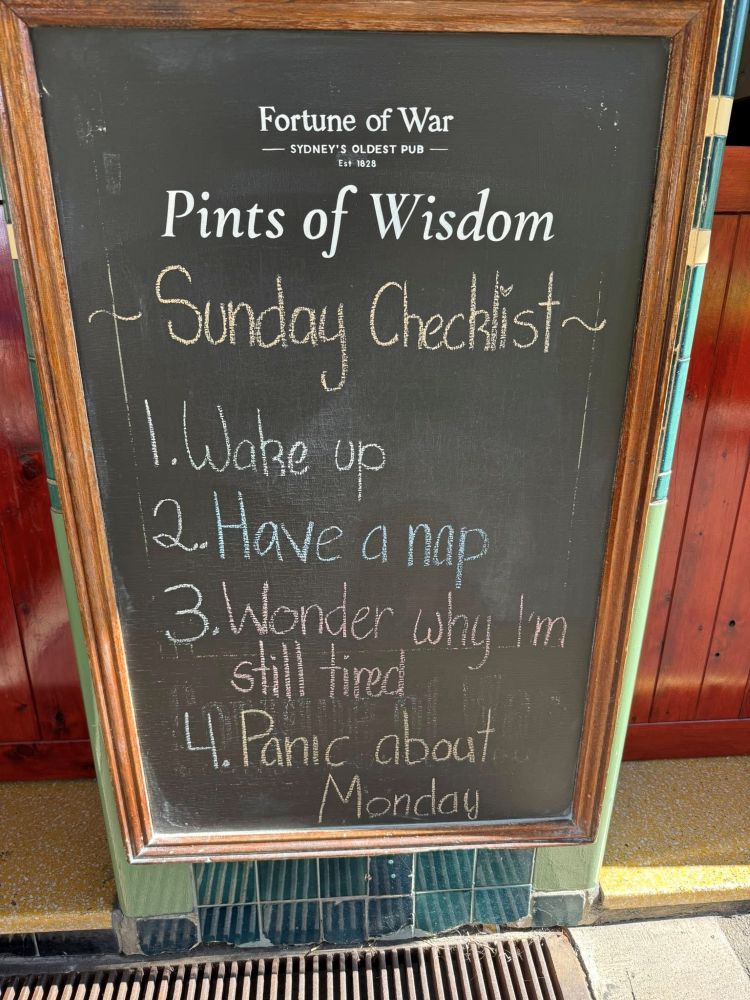 Fortune of War
— SYDNEY'S OLDEST PUB —
Est 1828
Pints of Wisdom
~ Sunday Checklist ~
1. Wake up
2. Have a nap
3. Wonder why I'm
still tired
4. Panic about
Monday